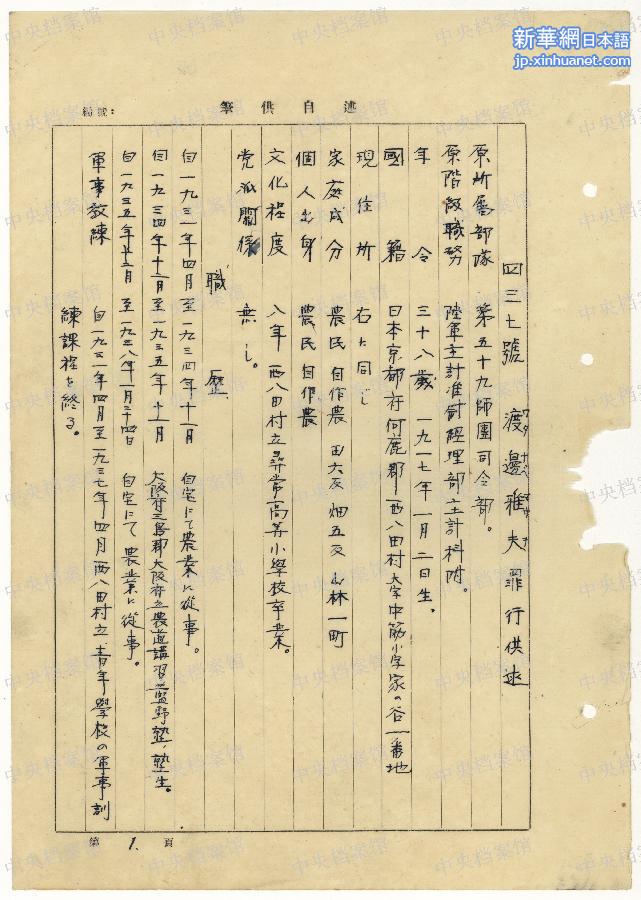 新華網日本語
jp.xinhuanet.com
述自供筆
編號:
四三七號 渡邊雅夫罪行供述
原所屬部隊 第五十九師團司令部。
原階級職務 陸軍主計准尉経理部主計科附。
年令 三十八歳 一九一七年一月二日生。
國籍 日本京都府何鹿郡西八田村大字中筋小字家の谷一番地
現住所 右に同じ
家庭成分 農民 自作農 田六反 畑五反 山林一町
個人出身 農民 自作農
文化程度 八年 西八田村立尋常高等小學校卒業。
党派關係 無し。
職歴
自一九三一年四月至一九三四年十一月 自宅にて農業に従事。
自一九三四年十二月至一九三五年十一月 大阪府三島郡大阪府立農道講習所 塾生。
自一九三五年十二月至一九三八年一月 自宅にて農業に従事。
軍事教練 自一九三一年四月至一九三七年四月西八田村立青年學校の軍事訓
練課程を終る。
第1.頁
中央档案馆